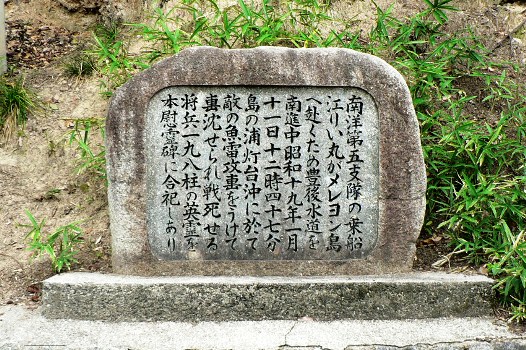 南洋第五支隊の乗船
江りい丸がメレヨン島
へ赴くため豊後水道を
南進中昭和十九年一月
十一日十二時四十七分
島の浦灯台沖に於て
敵の魚雷攻撃をうけて
轟沈せられ戦死せる
将兵一九八柱の英霊を
本尉霊碑に合祀しあり